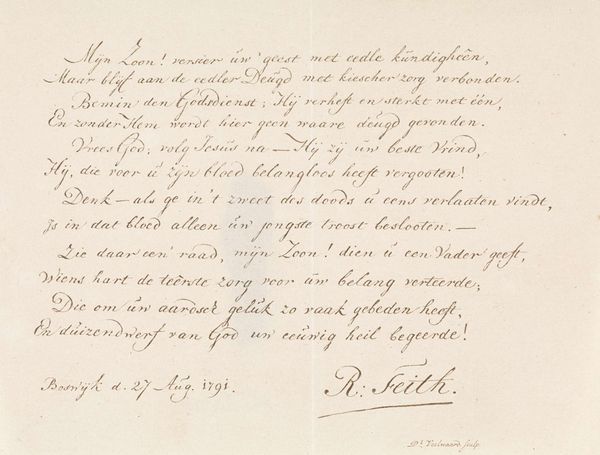 Mijn Zoon! versier ùw geest met eedle kùndigheên,
Maar blijf aan de eedler Deùgd met kiescher zorg verbonden.
Bemin den Godsdienst; Hij verheft en sterkt met één,
En zonder Hem wordt hier geen waare deùgd gevonden.
Vrees God; volg Jesùs na — Hij zij ùw beste Vrind,
Hij, die voor u zijn bloed belangloos heeft vergooten!
Denk — als ge in't zweet des doods ù eens verlaaten vindt,
Is in dat bloed alleen ùw jongste troost beslooten. —
Zie daar een' raad, mijn Zoon! dien ù een Vader geeft,
Wiens hart de teêrste zorg voor ùw belang verteerde;
Die om ùw aardsch gelùk zo vaak gebeden heeft,
En dùizendwerf van God uw eeùwig heil begeerde!
Boswijk d. 27 Aug. 1791.
R: Feith.
Dl. Veelwaard sculp.